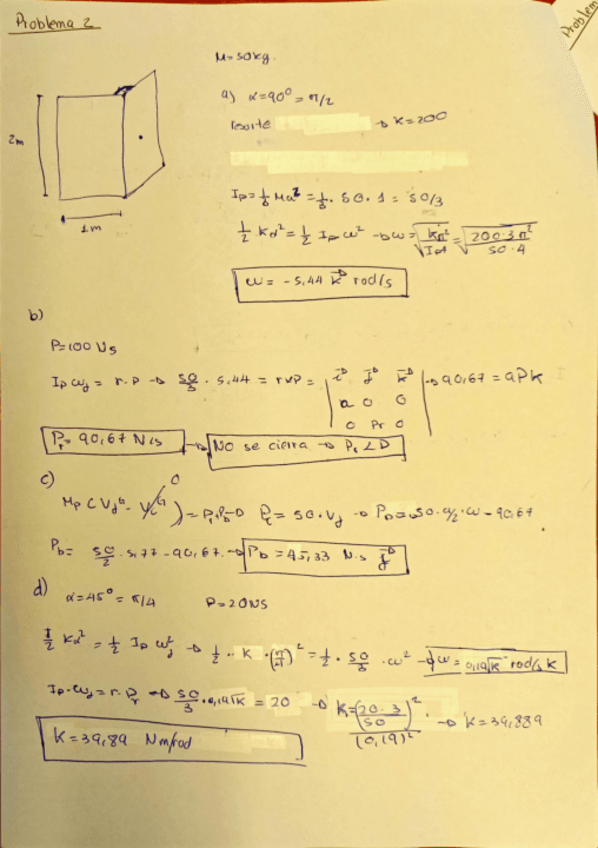 Problema 2
Problem
M=50kg.
a) α=90º = π/2
→ K=200
2m
1m
Ip = 1/3 Ma² = 1/3 · 50 · 1 = 50/3
1/2 Kα² = 1/2 Ip ω² → ω = √(Kα²/Ip) = √(200·3π²/50·4)
ω = -5,44 k rad/s
b)
P=100 Ns
Ip ωf = r·P → 50/3 · 5,44 = r×P = | i j k | → 90,67 = aPk
a 0 0
0 Pr 0
Pr = 90,67 N·s → NO se cierra → Pr < P
c)
0
Pr = 50·Vf → Pb = 50·a/2·ω - 90,67
Pb = 50/2 · 5,77 - 90,67 → Pb = 45,33 N·s j
d)
α=45º = π/4 P=20NS
1/2 Kα² = 1/2 Ip ωf² → 1/2 · K · (π/4)² = 1/2 · 50/3 · ω² → ω = 0,19√K rad/s k
Ip·ωf = r·Pr → 50/3 · 0,19√K = 20 → K = (20·3/50)²/(0,19)² → K=39,889
K = 39,89 Nm/rad